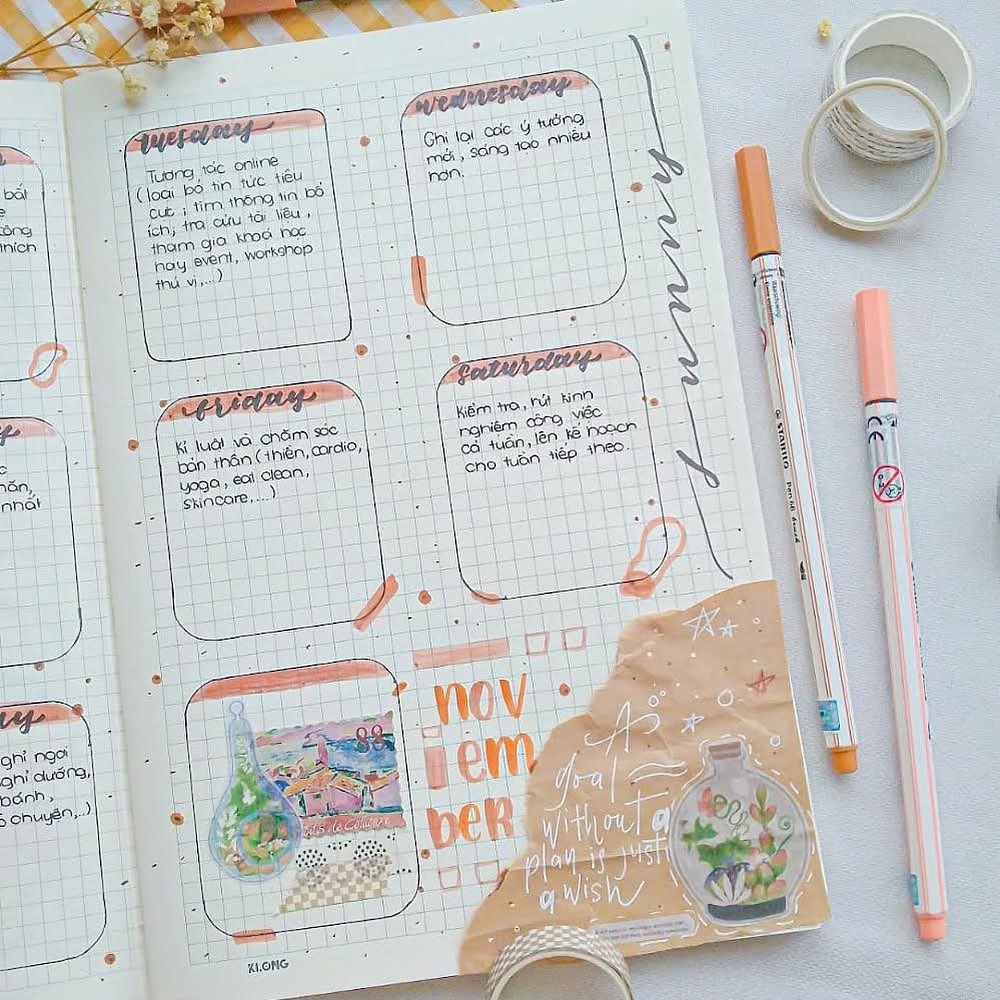 bất
công
thích
nhất
nghỉ ngơi
nghỉ dưỡng,
bánh,
chuyện,..)
tuesday
Tương tác online
(loại bỏ tin tức tiêu
cực ; tìm thông tin bổ
ích; tra cứu tài liệu ,
tham gia khoá học
hay event, workshop
thú vị,...)
wednesday
Ghi lại các ý tưởng
mới, sáng tạo nhiều
hơn.
friday
Kỉ luật và chăm sóc
bản thân (thiền, cardio,
yoga, eat clean,
skincare,...)
saturday
Kiểm tra, rút kinh
nghiệm công việc
cả tuần, lên kế hoạch
cho tuần tiếp theo.
88
nov
em
ber
A
goal
without a
plan is just
a wish
KLONG
STABILO
Pen 68
CE